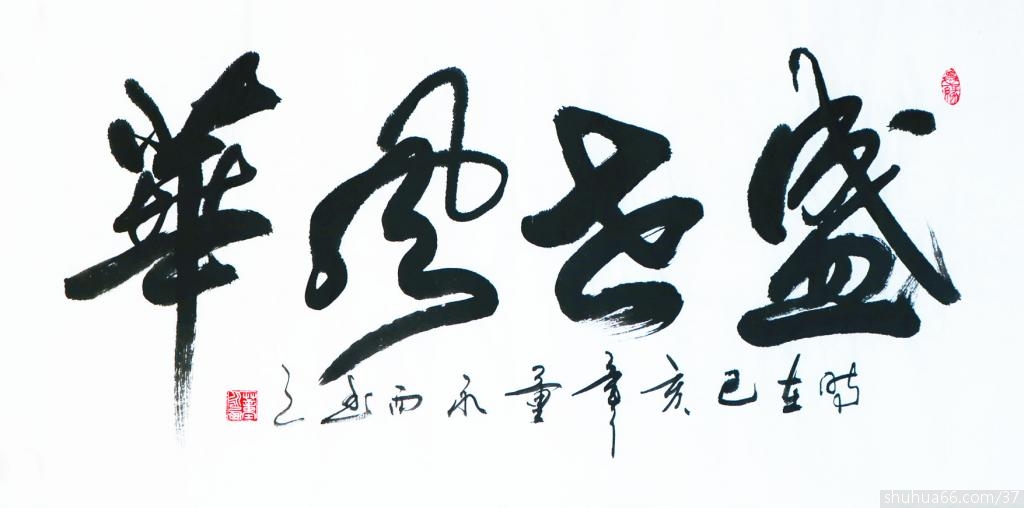 盛世風華
时在己亥年董永西书之
shuhua66.com/37